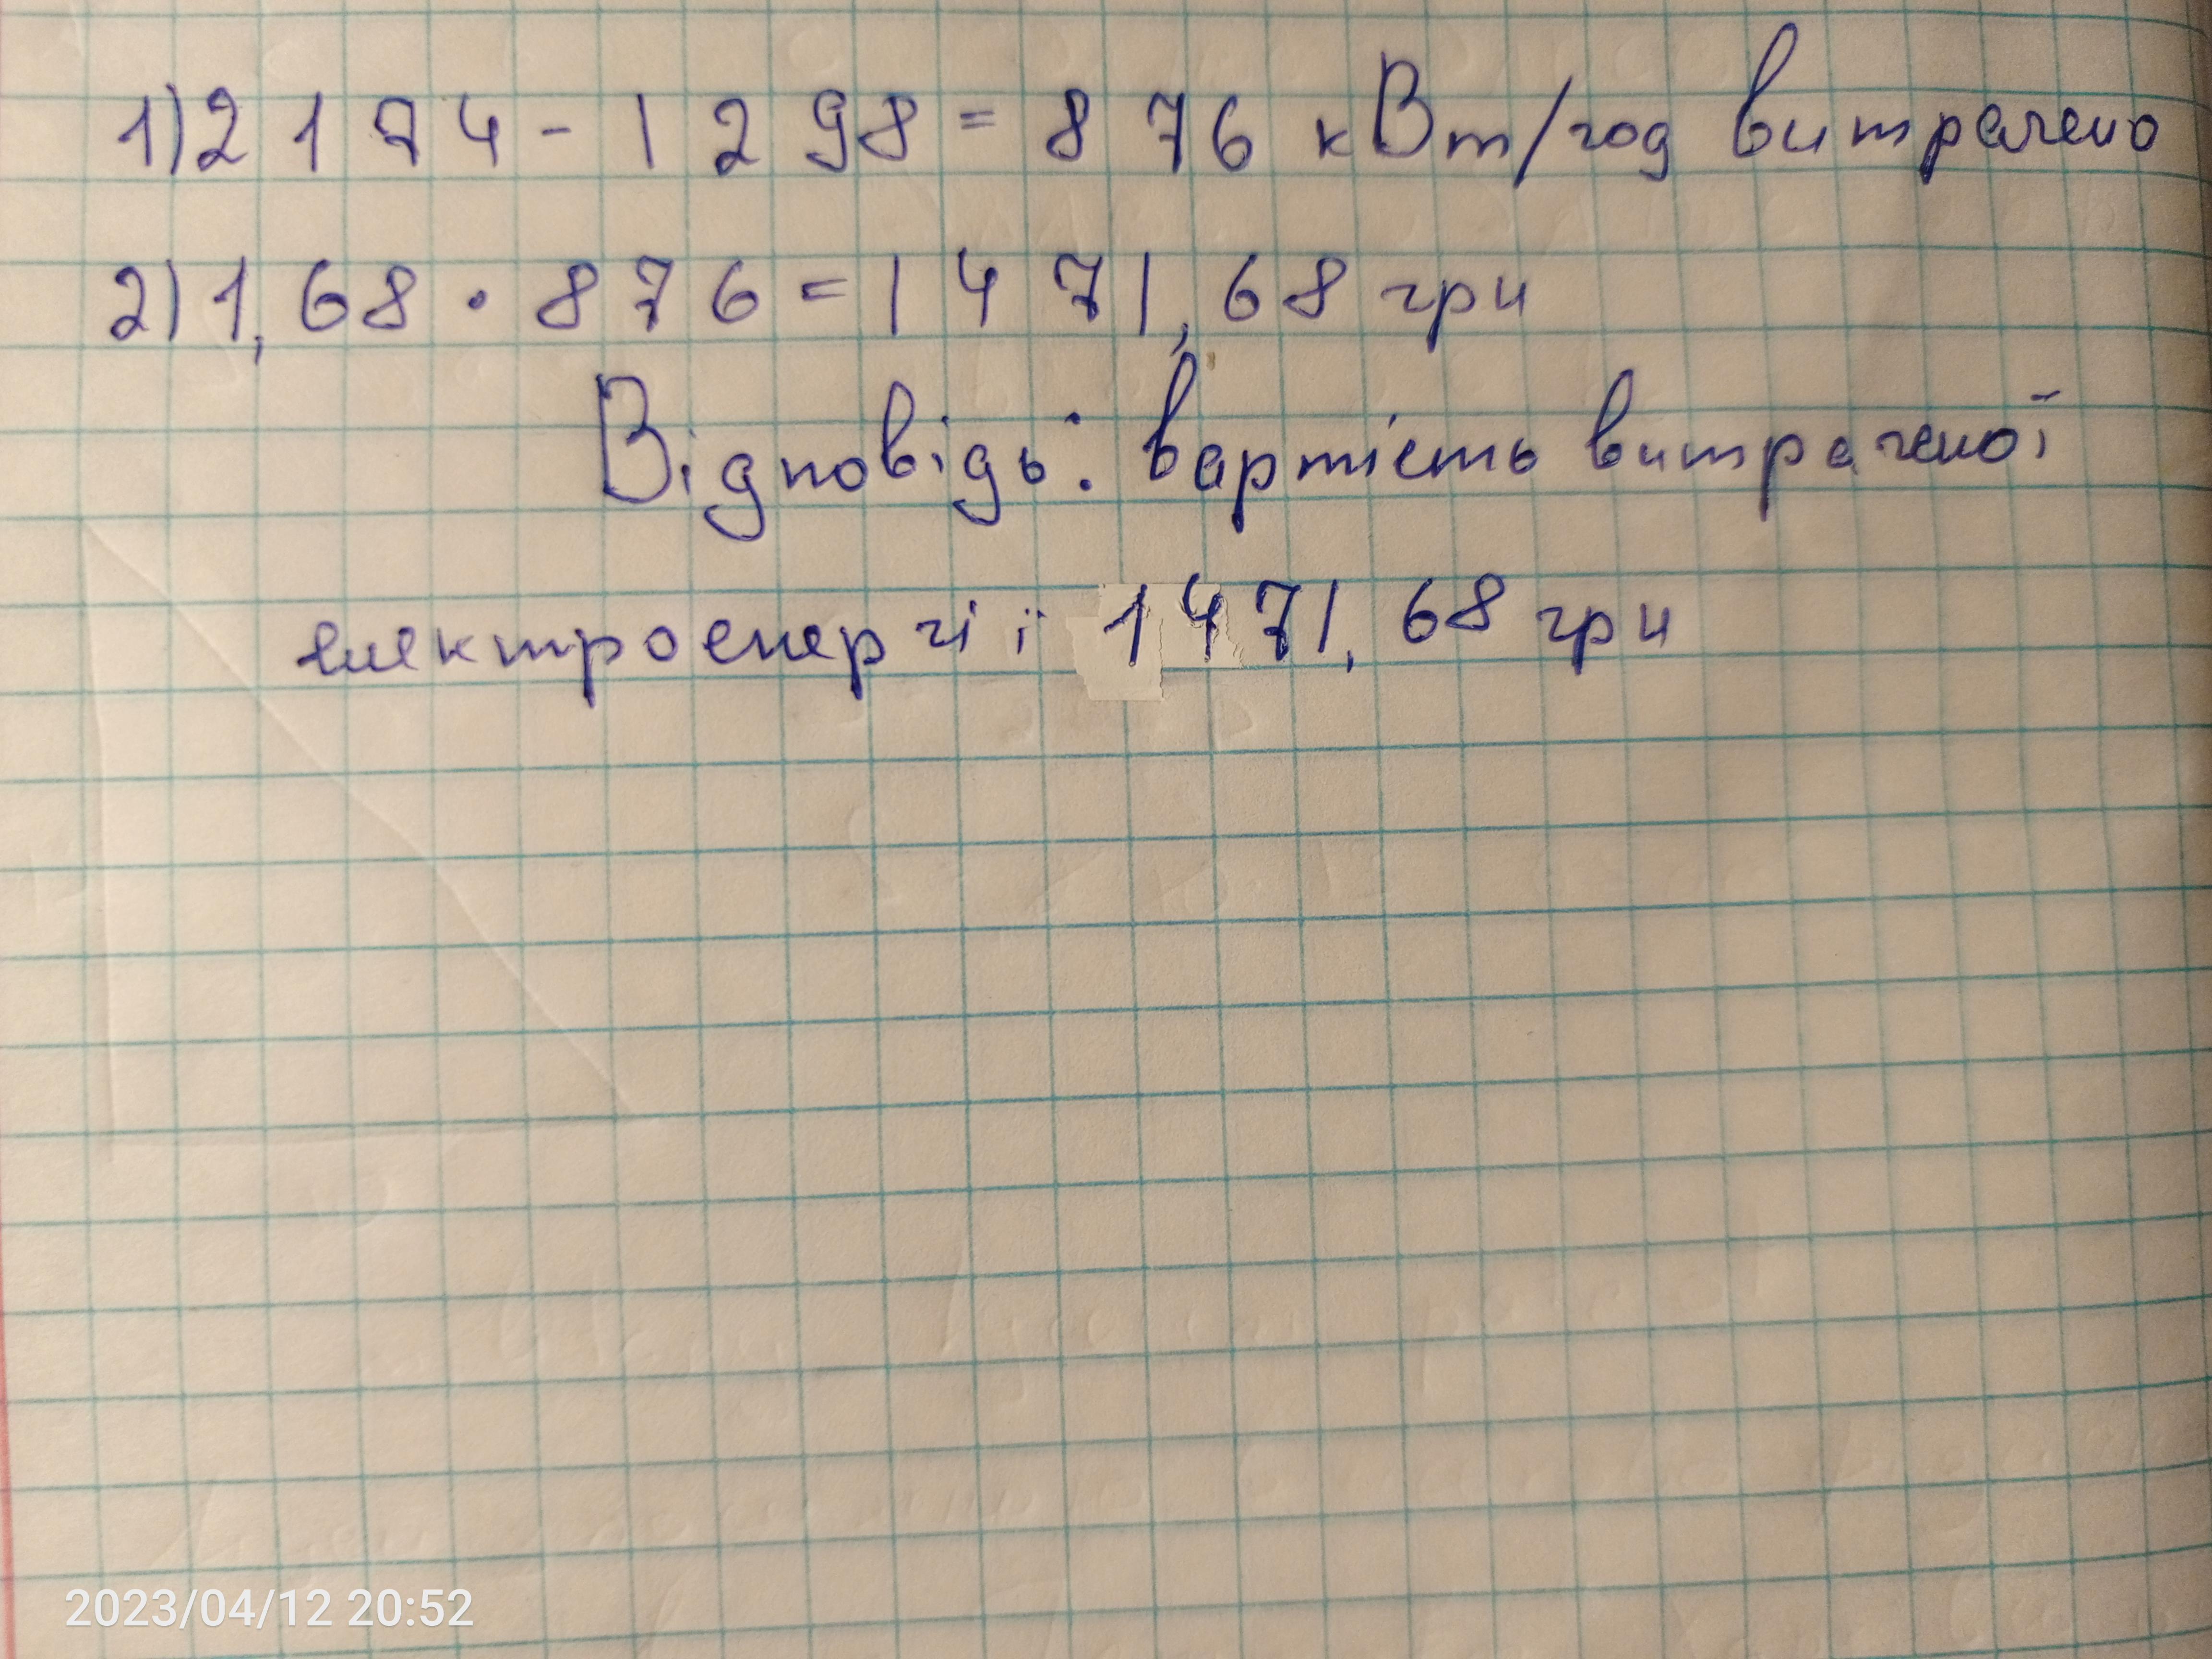 1) 2174 - 1298 = 876 кВт/год витрачено
2) 1,68 · 876 = 1471,68 грн
Відповідь: вартість витраченої
електроенергії 1471,68 грн
2023/04/12 20:52